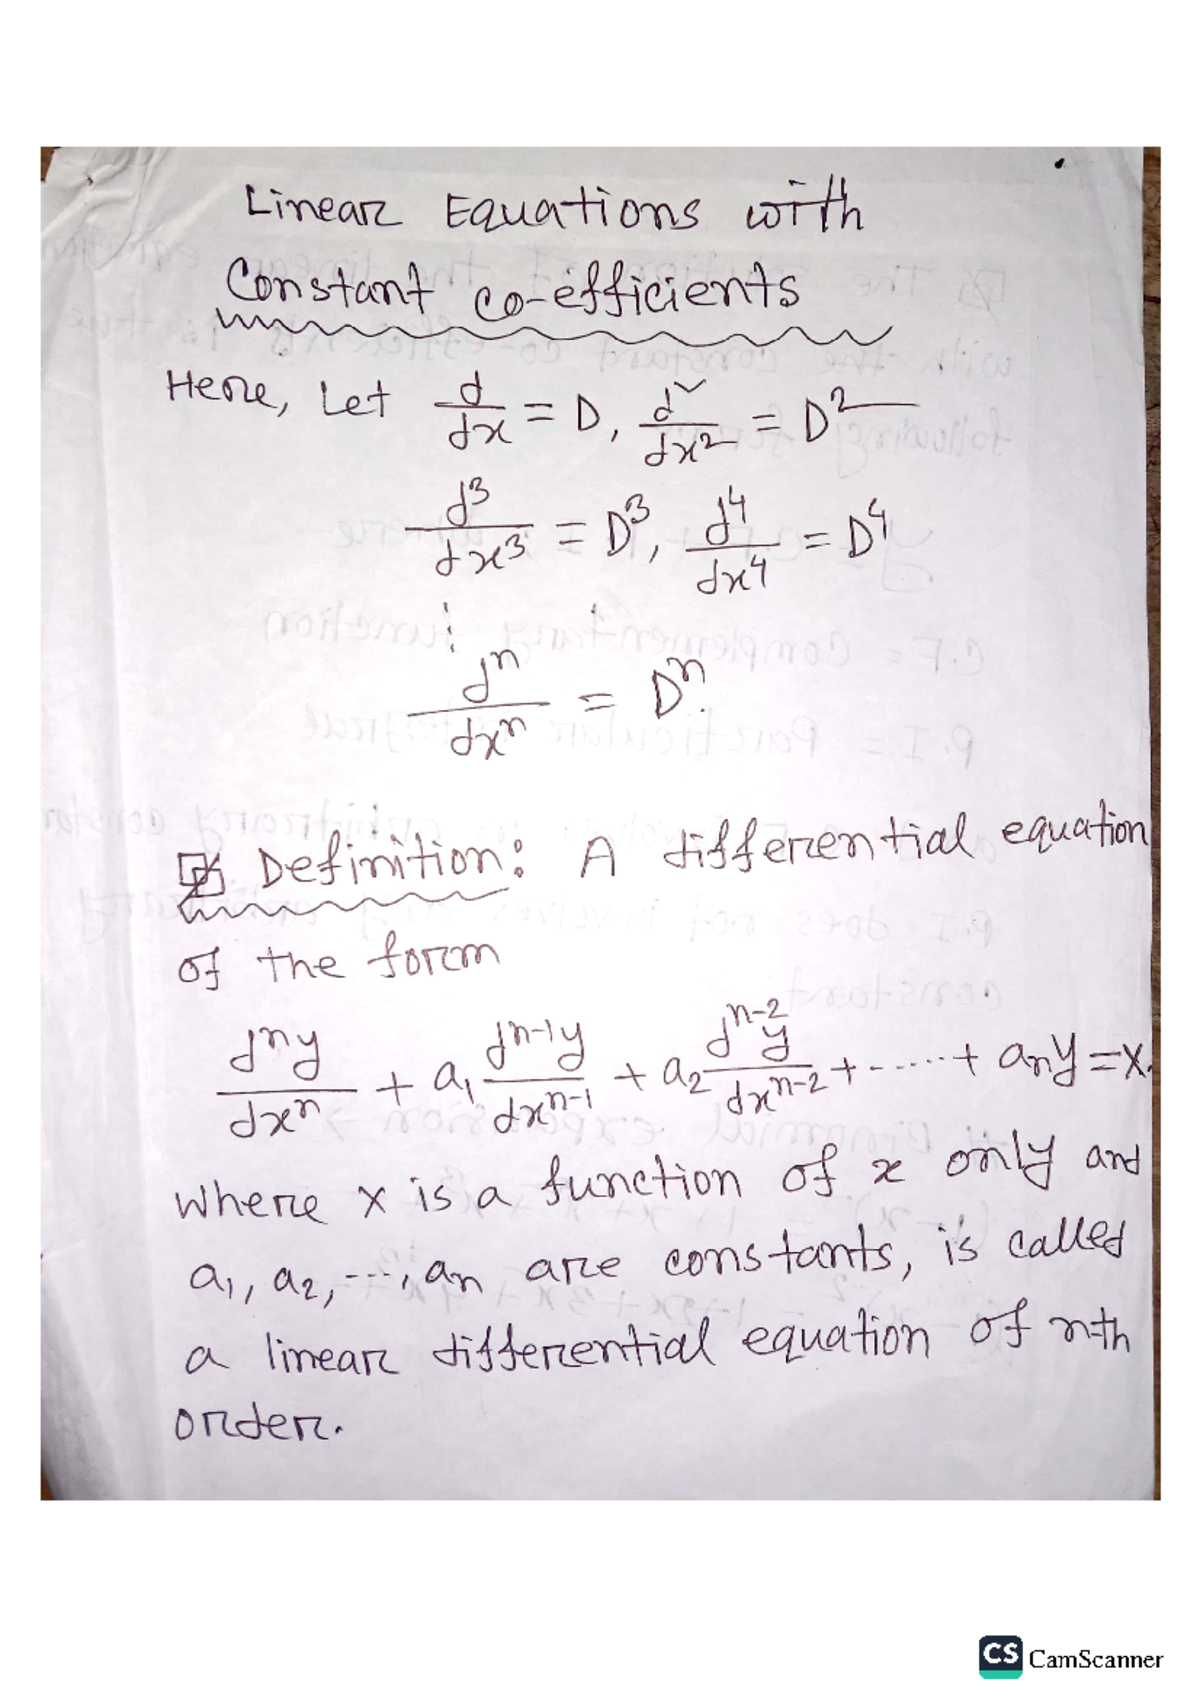 Linear Equations with
Constant co-efficients
Here, Let d/dx = D, d²/dx² = D²
d³/dx³ = D³, d⁴/dx⁴ = D⁴
⋮
dⁿ/dxⁿ = Dⁿ.
Definition: A differential equation
of the form
dⁿy/dxⁿ + a₁ dⁿ⁻¹y/dxⁿ⁻¹ + a₂ dⁿ⁻²y/dxⁿ⁻² + ...... + aₙy = X.
where X is a function of x only and
a₁, a₂, ..., aₙ are constants, is called
a linear differential equation of n-th
order.
CS CamScanner